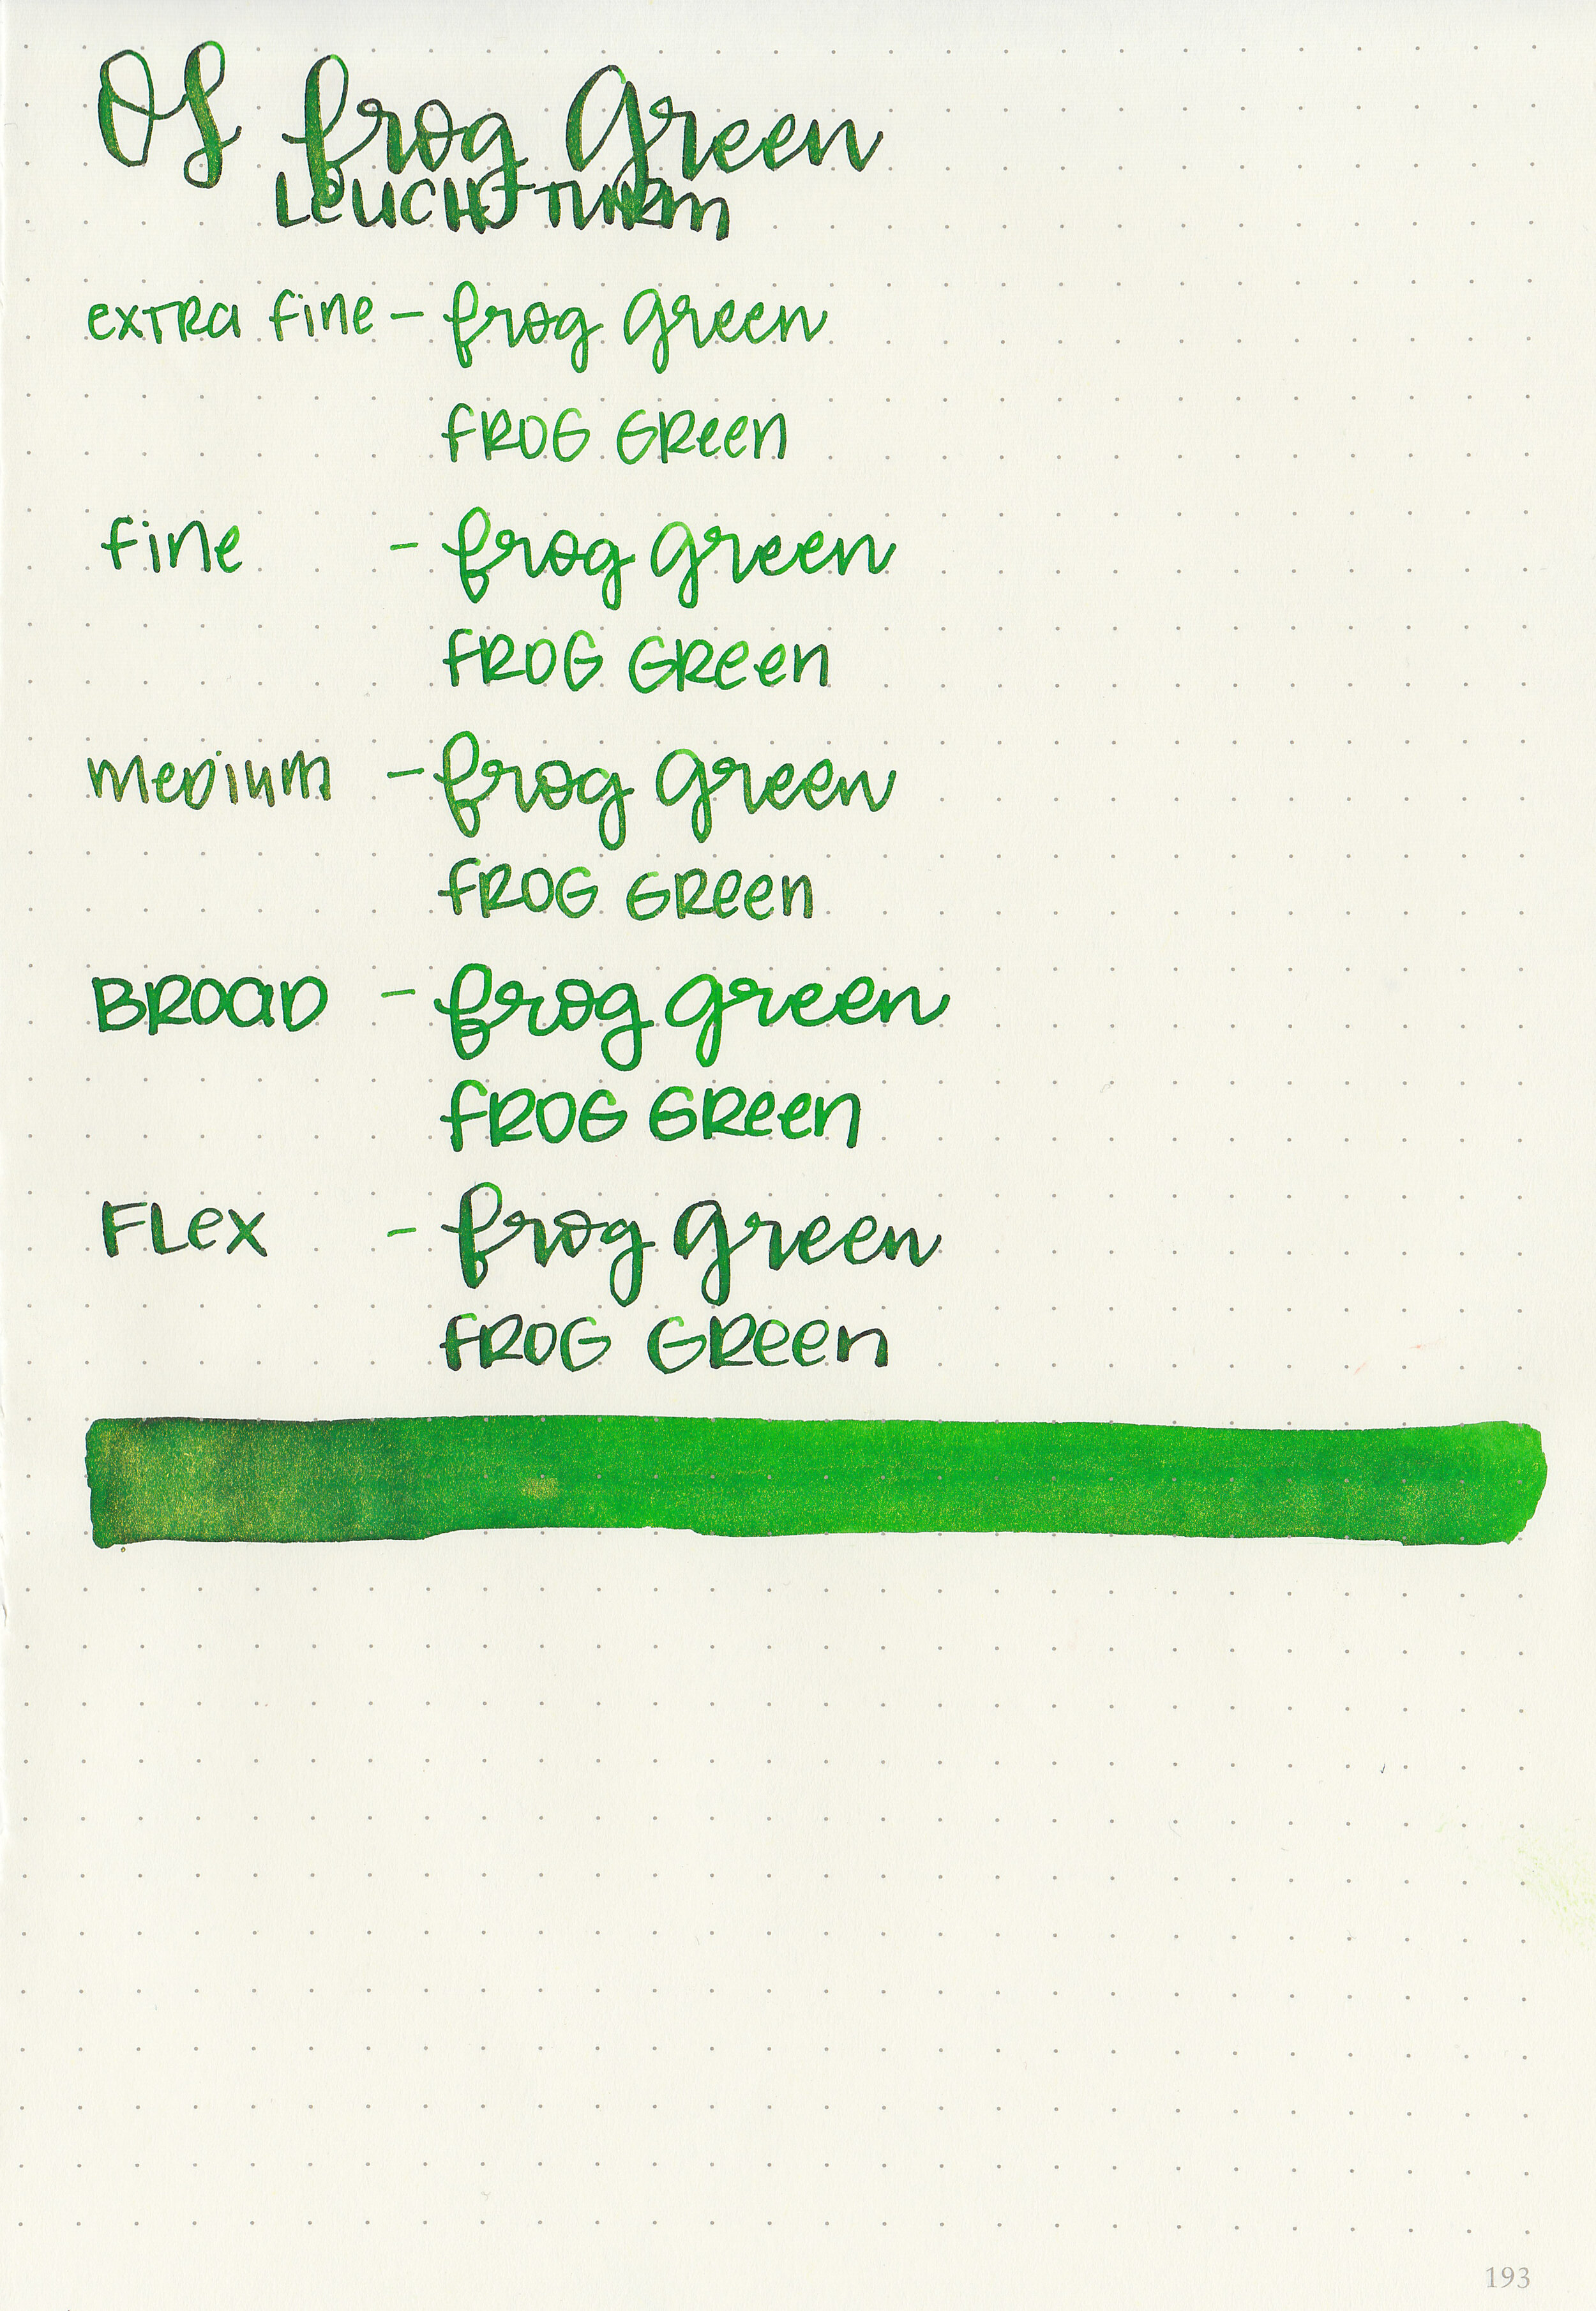 OS frog green
LEUCHTTURM
extra fine - frog green
FROG GREEN
fine - frog green
FROG GREEN
medium - frog green
FROG GREEN
BROAD - frog green
FROG GREEN
FLEX - frog green
FROG GREEN
193